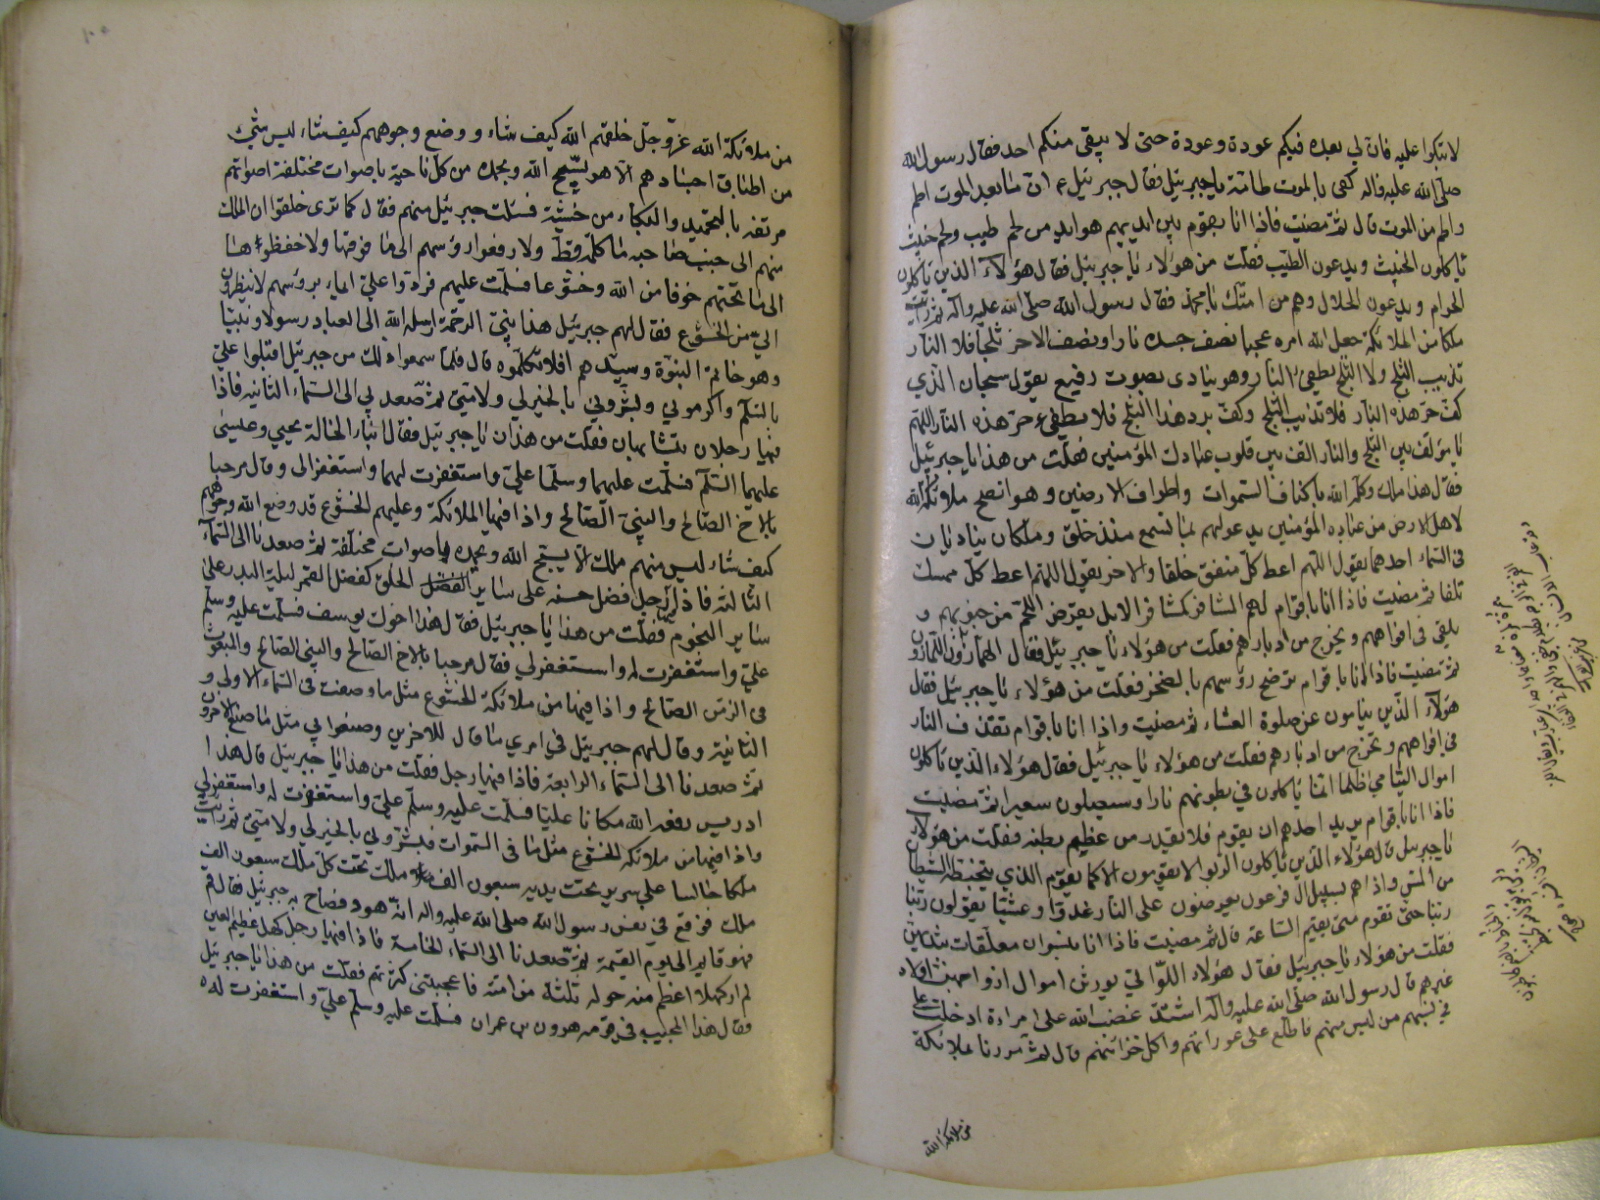 لا تبكوا عليه فان لي بعده فيكم عودة وعودة حتى لا يبقى منكم احد فقال رسول الله
صلى الله عليه واله كفى بالموت طامة يا جبرئيل فقال جبرئيل ع ان ما بعد الموت اطم
واطم من الموت قال ثم مضيت فاذا انا بقوم بين ايديهم موايد من لحم طيب ولحم خبيث
ياكلون الخبيث ويدعون الطيب فقلت من هؤلاء يا جبرئيل فقال هؤلاء الذين ياكلون
الحرام ويدعون الحلال وهم من امتك يا محمد فقال رسول الله صلى الله عليه وآله ثم رايت
ملكا من الملائكة جعل الله امره عجبا نصف جسده نارا ونصف الاخر ثلجا فلا النار
تذيب الثلج ولا الثلج يطفئ النار وهو ينادى بصوت رفيع يقول سبحان الذي
كف حر هذه النار فلا تذيب الثلج وكف برد هذا الثلج فلا يطفىء حر هذه النار اللهم
يا مؤلف بين الثلج والنار الف بين قلوب عبادك المؤمنين فقلت من هذا يا جبرئيل
فقال هذا ملك وكله الله باكناف السموات واطراف الارضين وهو انصح ملائكة الله
لاهل الارض من عباده المؤمنين يدعو لهم بما تسمع منذ خلق وملكان يناديان
فى السماء احدهما يقول اللهم اعط كل منفق خلفا والاخر يقول اللهم اعط كل ممسك
تلفا ثم مضيت فاذا انا باقوام لهم مشافر كمشافر الابل يقرض اللحم من جنوبهم و
يلقى فى افواههم ويخرج من ادبارهم فقلت من هؤلاء يا جبرئيل فقال الهمازون اللمازون
ثم مضيت فاذا انا باقوام ترضخ رؤسهم بالصخر فقلت من هؤلاء يا جبرئيل فقال
هؤلاء الذين ينامون عن صلوة العشاء ثم مضيت واذا انا باقوام تقذف النار
فى افواههم وتخرج من ادبارهم فقلت من هؤلاء يا جبرئيل فقال هؤلاء الذين ياكلون
اموال اليتامى ظلما انما ياكلون فى بطونهم نارا وسيصلون سعيرا ثم مضيت
فاذا انا باقوام يريد احدهم ان يقوم فلا يقدر من عظم بطنه فقلت من هؤلاء
يا جبرئيل قال هؤلاء الذين ياكلون الربوا لا يقومون الا كما يقوم الذي يتخبطه الشيطان
من المس واذا هم بسبيل آل فرعون يعرضون على النار غدوا وعشيا يقولون ربنا
ربنا حتى تقوم متى يقيم الساعة قال ثم مضيت فاذا انا بنسوان معلقات بثديهن
فقلت من هؤلاء يا جبرئيل فقال هؤلاء اللواتي يورثن اموال ازواجهن اولاد
غيرهم قال رسول الله صلى الله عليه وآله اشتد غضب الله على امراة ادخلت على
فى نسبهم من ليس منهم فاطلع على عوراتهم واكل خزائنهم قال ثم مررنا بملائكة
من ملائكة الله
من ملائكة الله عز وجل خلقهم الله كيف شاء ووضع وجوههم كيف شاء ليس شىء
من اطباق اجسادهم الا هو يسبح الله وبحمده من كل ناحية باصوات مختلفة اصواتهم
مرتفعة بالتحميد والبكاء من خشية فسئلت جبرئيل منهم فقال كما ترى خلقوا ان الملك
منهم الى جنب صاحبه ما كلمه قط ولا رفعوا رؤسهم الى ما فوقها ولا خفضوها
الى ما تحتهم خوفا من الله وخشوعا فسلمت عليهم فردوا علي ايماء برؤسهم لا ينظرون
الي من الخشوع فقال لهم جبرئيل هذا نبي الرحمة ارسله الله الى العباد رسولا ونبيا
وهو خاتم النبوة وسيدهم افلا تكلموه قال فلما سمعوا ذلك من جبرئيل اقبلوا علي
بالسلام واكرموني وبشروني بالخير لي ولامتي ثم صعد بي الى السماء الثانيه فاذا
فيها رجلان متشابهان فقلت من هذان يا جبرئيل فقال ابنا الخالة يحيي وعيسى
عليهما السلام فسلمت عليهما وسلما علي واستغفرت لهما واستغفرا لى وقال مرحبا
بالاخ الصالح والنبي الصالح واذا فيها الملائكة وعليهم الخشوع قد وضع الله وجوههم
كيف شاء ليس منهم ملك الا يسبح الله وبحمده باصوات مختلفة ثم صعدنا الى السماء
الثالثة فاذا رجل فضل حسنه على ساير الخلق كفضل القمر ليلة البدر على
ساير النجوم فقلت من هذا يا جبرئيل فقال هذا اخوك يوسف فسلمت عليه وسلم
علي واستغفرت له واستغفر لي فقال مرحبا بالاخ الصالح والنبي الصالح والمبعوث
فى الزمن الصالح واذا فيها من ملائكة الخشوع مثل ما وصفت فى السماء الاولى و
الثانية وقال لهم جبرئيل في امري ما قال للاخرين وصنعوا بي مثل ما صنع الاخرون
ثم صعدنا الى السماء الرابعة فاذا فيها رجل فقلت من هذا يا جبرئيل قال هذا
ادريس رفعه الله مكانا عليا فسلمت عليه وسلم علي واستغفرت له واستغفر لي
واذا فيها من ملائكة الخشوع مثل ما فى السموات فبشروني بالخير لي ولامتي ثم رايت
ملكا جالسا على سرير تحت يديه سبعون الف ملك تحت كل ملك سبعون الف
ملك فوقع في نفس رسول الله صلى الله عليه واله انه هو فصاح به جبرئيل فقال قم
فهو قايم الى يوم القيمة ثم صعدنا الى السماء الخامسة فاذا فيها رجل كهل عظيم العين
لم ار كهلا اعظم منه حوله ثلثة من امته فاعجبتنى كثرتهم فقلت من هذا يا جبرئيل
فقال هذا المجيب فى قومه هرون بن عمران فسلمت عليه وسلم علي واستغفرت له